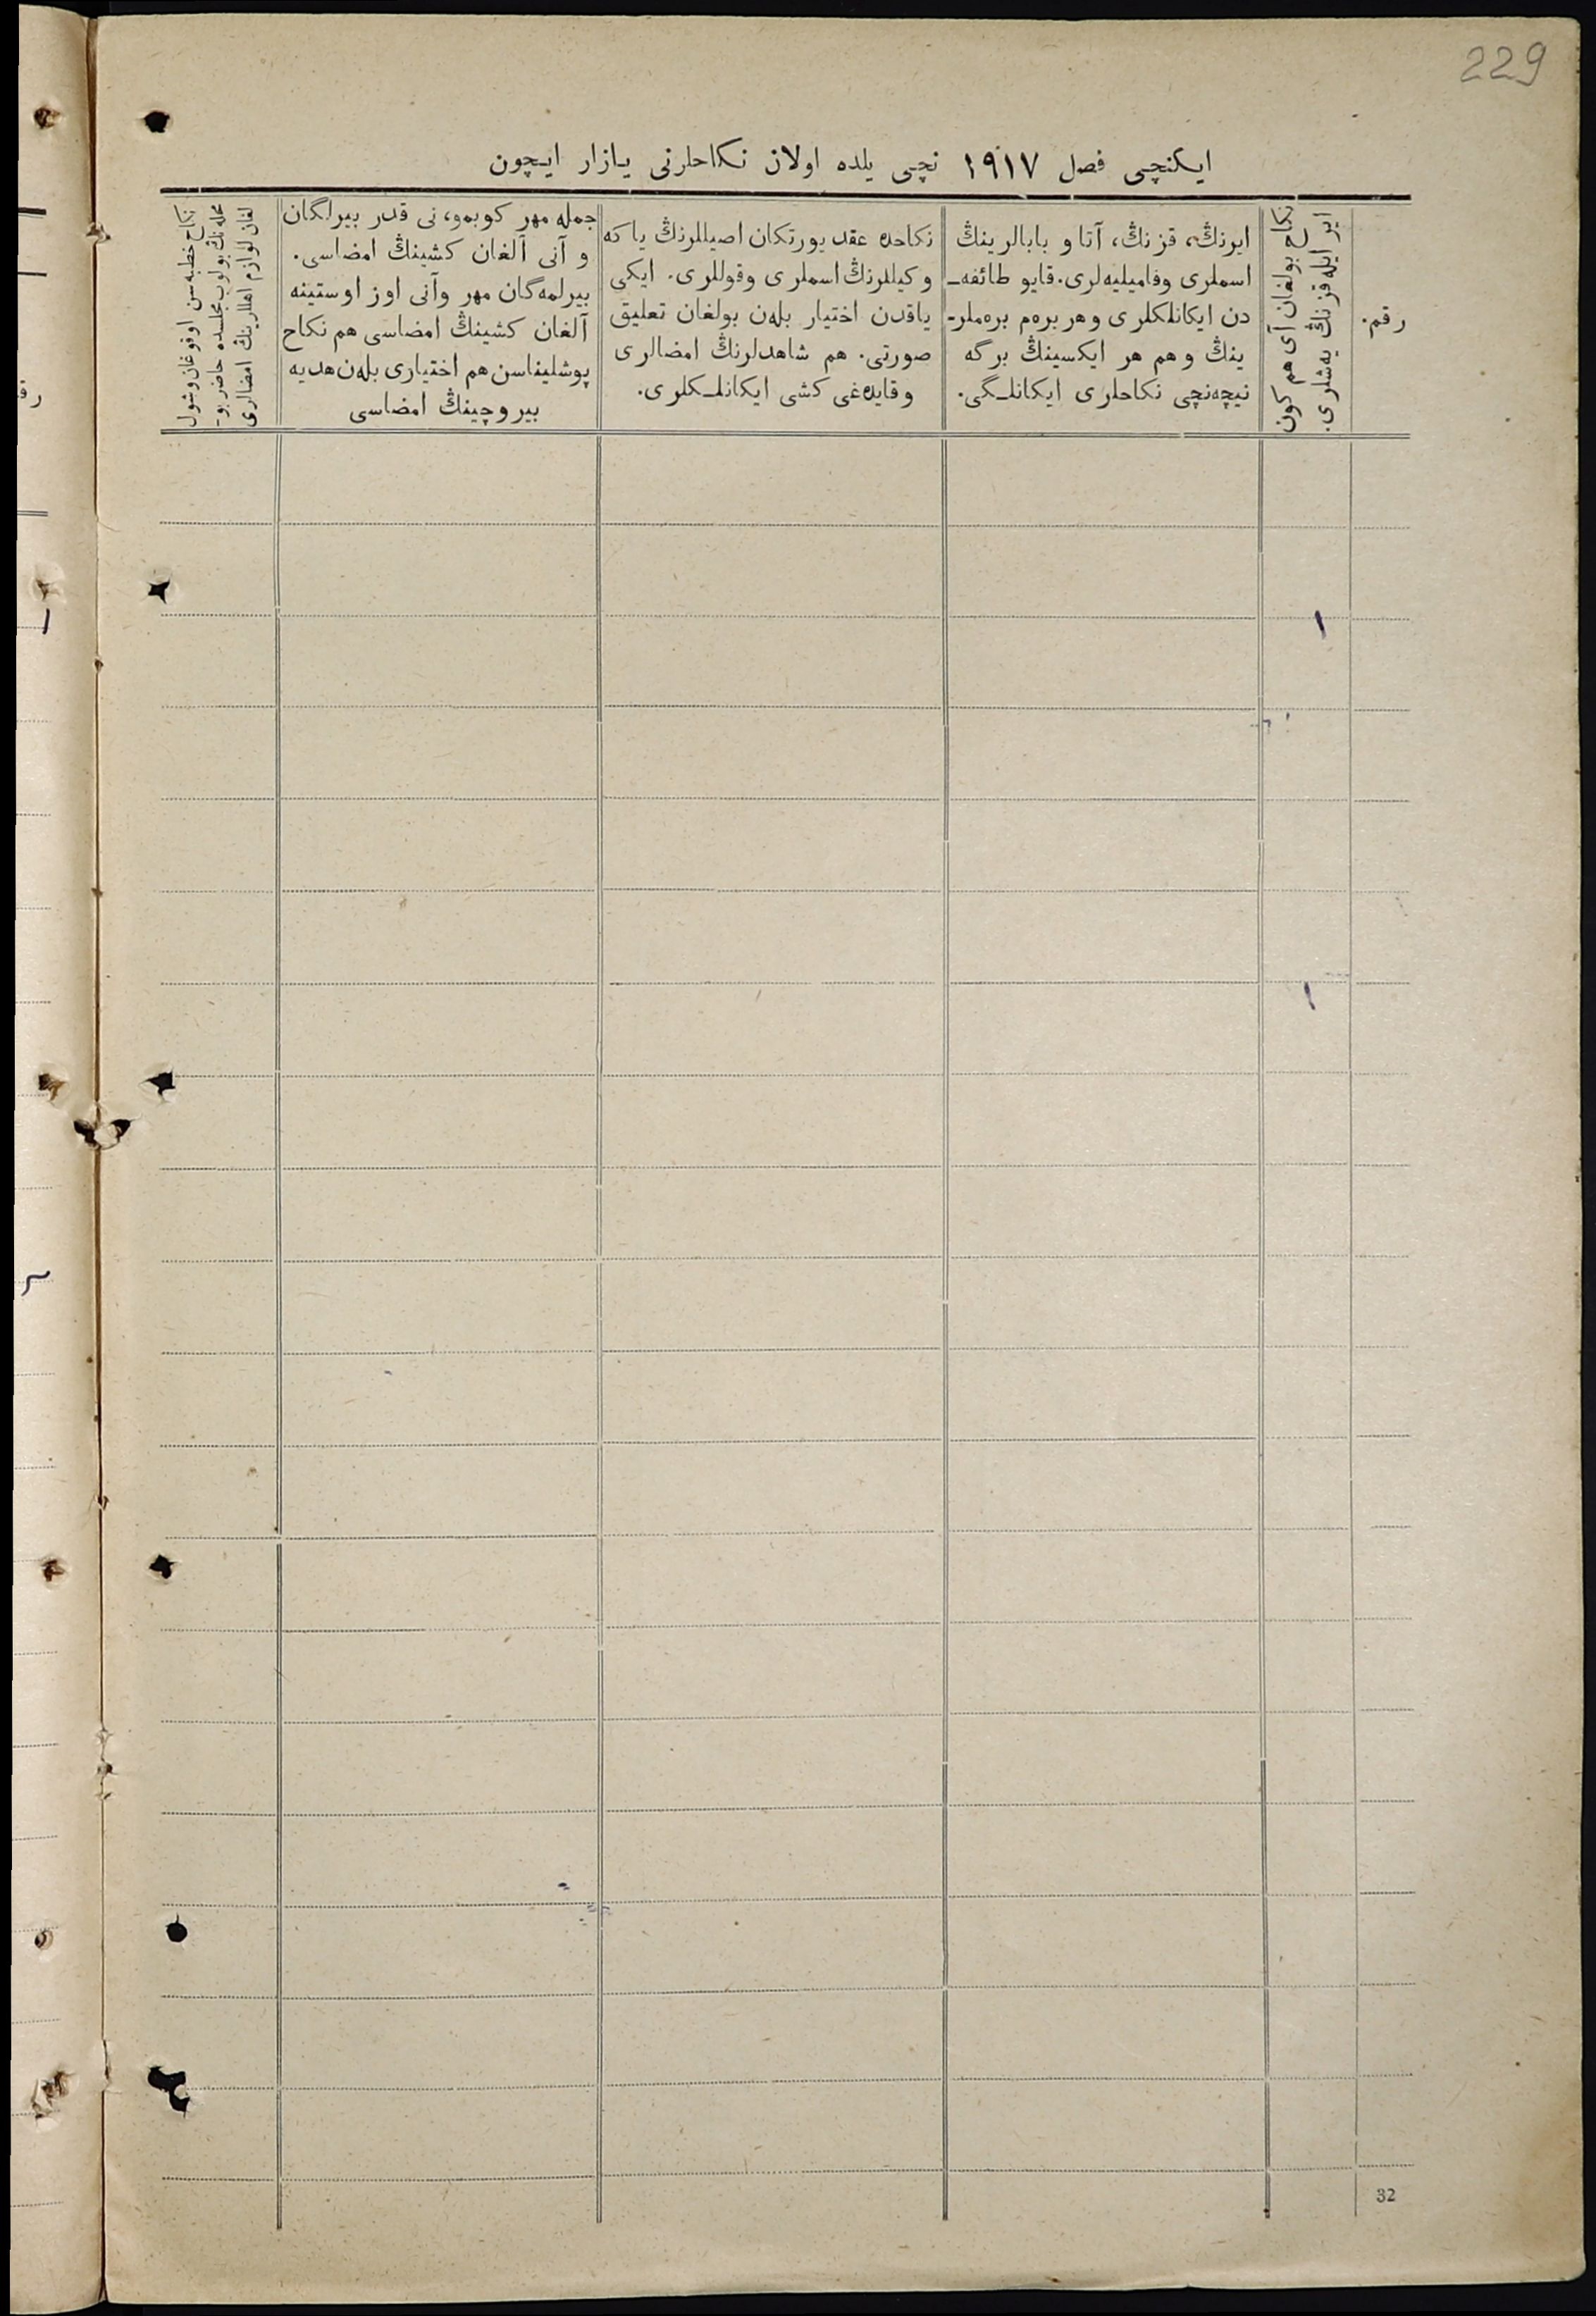 229
ایکنچی فصل ۱۹۱۷ نچی یلده اولان نکاحلرنی یازار ایچون
رقم.
نکاح بولغان آی هم کون
ایر ایله قزنڭ یه‌شلری.
ایرنڭ، قزنڭ، آتا و بابالرینڭ
اسملری وفامیلیه‌لری. قایو طائفه‌ـ
دن ایکانلکلری وهر بره‌م بره‌ملرـ
ینڭ و هم هر ایکسینڭ برگه
نیچه‌نچی نکاحلری ایکانلـگی.
نکاحده عقد یورتکان اصیللرنڭ یا که
وکیللرنڭ اسملری وقوللری. ایکی
یاقدن اختیار بله‌ن بولغان تعلیق
صورتی. هم شاهدلرنڭ امضالری
وقایده‌غی کشی ایکانلـکلری.
جمله مهر کوبمو، نی قدر بیرلگان
و آنی آلغان کشینڭ امضاسی.
بیرلمه‌گان مهر وآنی اوز اوستینه
آلغان کشینڭ امضاسی هم نکاح
پوشلیناسن هم اختیاری بله‌ن هدیه
بیروچینڭ امضاسی
نکاح خطبه سن اوقوغان وشول
محله نڭ بولوب مجلسده حاضر بوـ
لغان لوازم اهللارینڭ امضالری
۱
۱
32